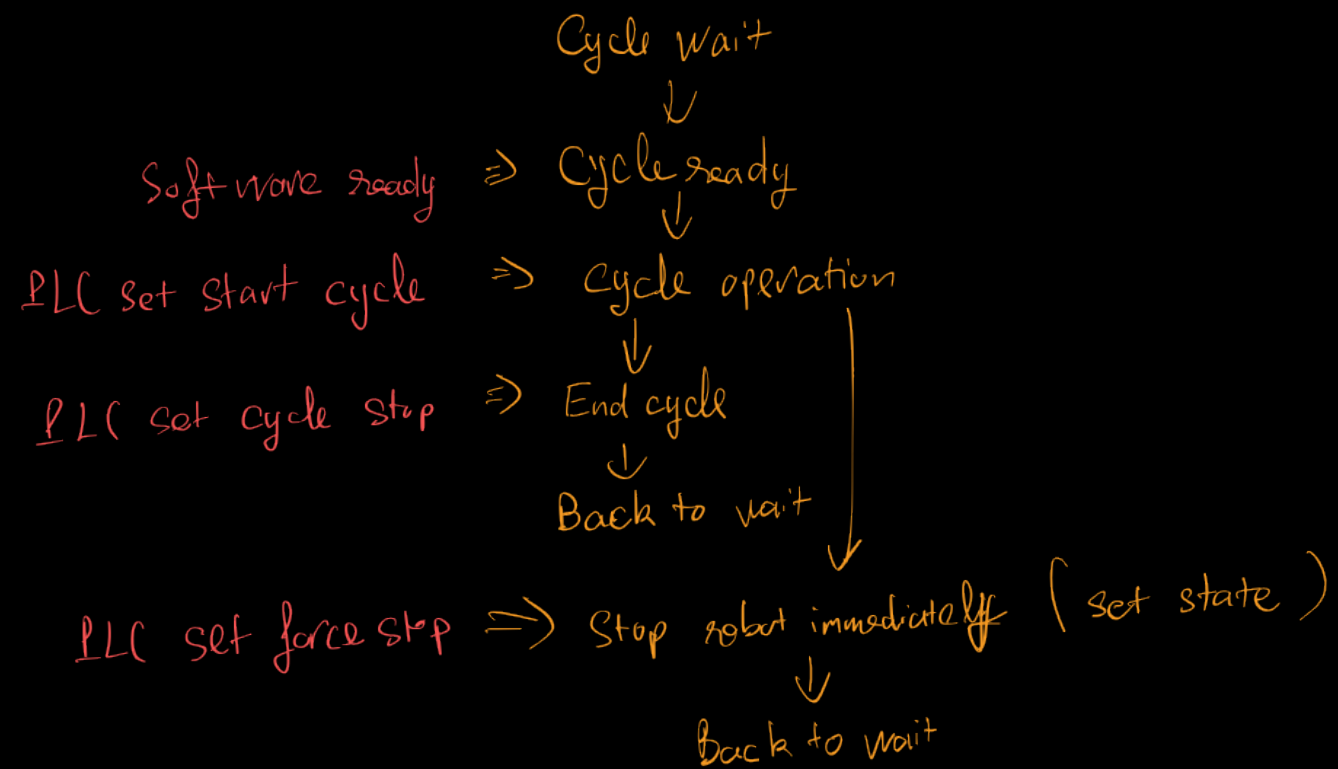 Cycle wait
↓
Software ready ⇒ Cycle ready
↓
PLC set start cycle ⇒ Cycle operation
↓
PLC set cycle stop ⇒ End cycle
↓
Back to wait
↓
PLC set force stop ⇒ Stop robot immediately (set state)
↓
Back to wait